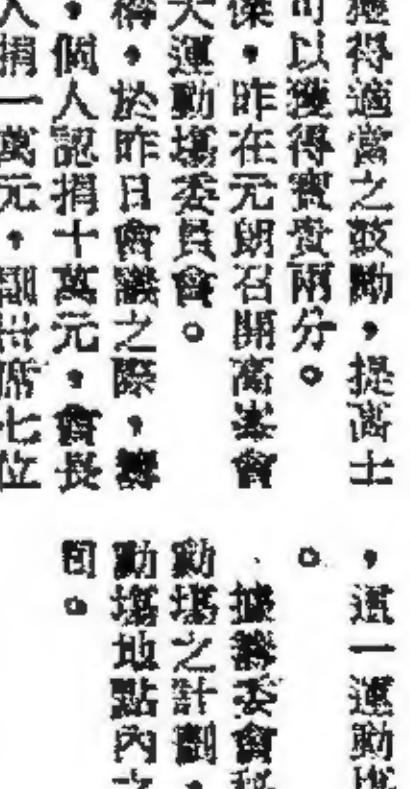 得適當之鼓勵，提高士
可以獲得寶貴兩分。
傑，昨在元朗召開高峯會
大運動場委員會。
，於昨日會議之際，籌
，個人認捐十萬元，會長
人捐一萬元，副主席七位
，這一運動
。
據籌委會
動場之計劃，
動場地點內之
問。